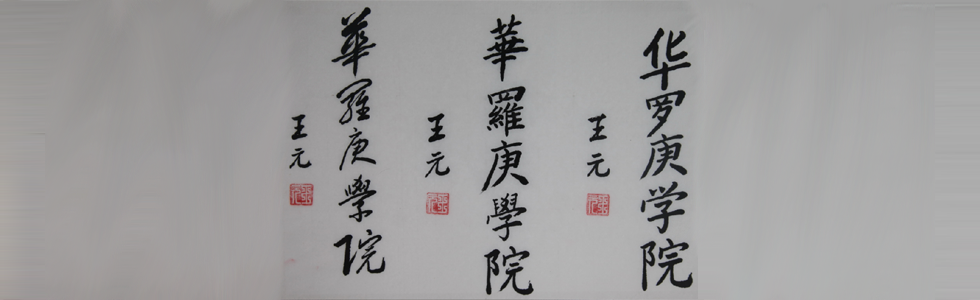 华罗庚学院
王元
華羅庚學院
王元
華羅庚學院
王元